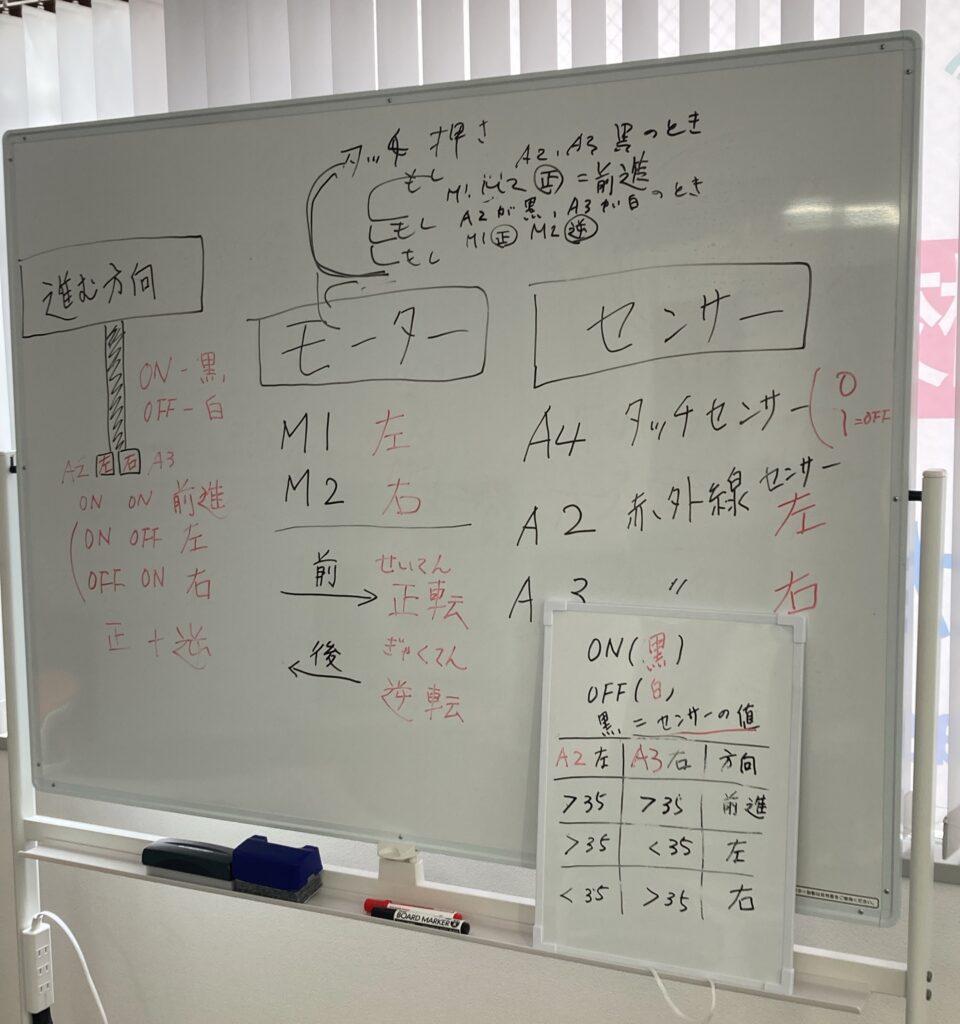 タッチ 押さ
もし A2, A3 黒のとき
M1, M2 正 = 前進
もし A2が黒, A3が白のとき
M1 正 M2 逆
もし
進む方向
ON - 黒
OFF - 白
A2 左 右 A3
ON ON 前進
ON OFF 左
OFF ON 右
正 + 逆
モーター
M1 左
M2 右
前 せいてん
正転
後 ぎゃくてん
逆転
センサー
A4 タッチセンサー 0
1=OFF
A2 赤外線センサー 左
A3 〃 右
ON(黒)
OFF(白)
黒 = センサーの値
A2左 A3右 方向
>35 >35 前進
>35 <35 左
<35 >35 右
BOARD MARKER